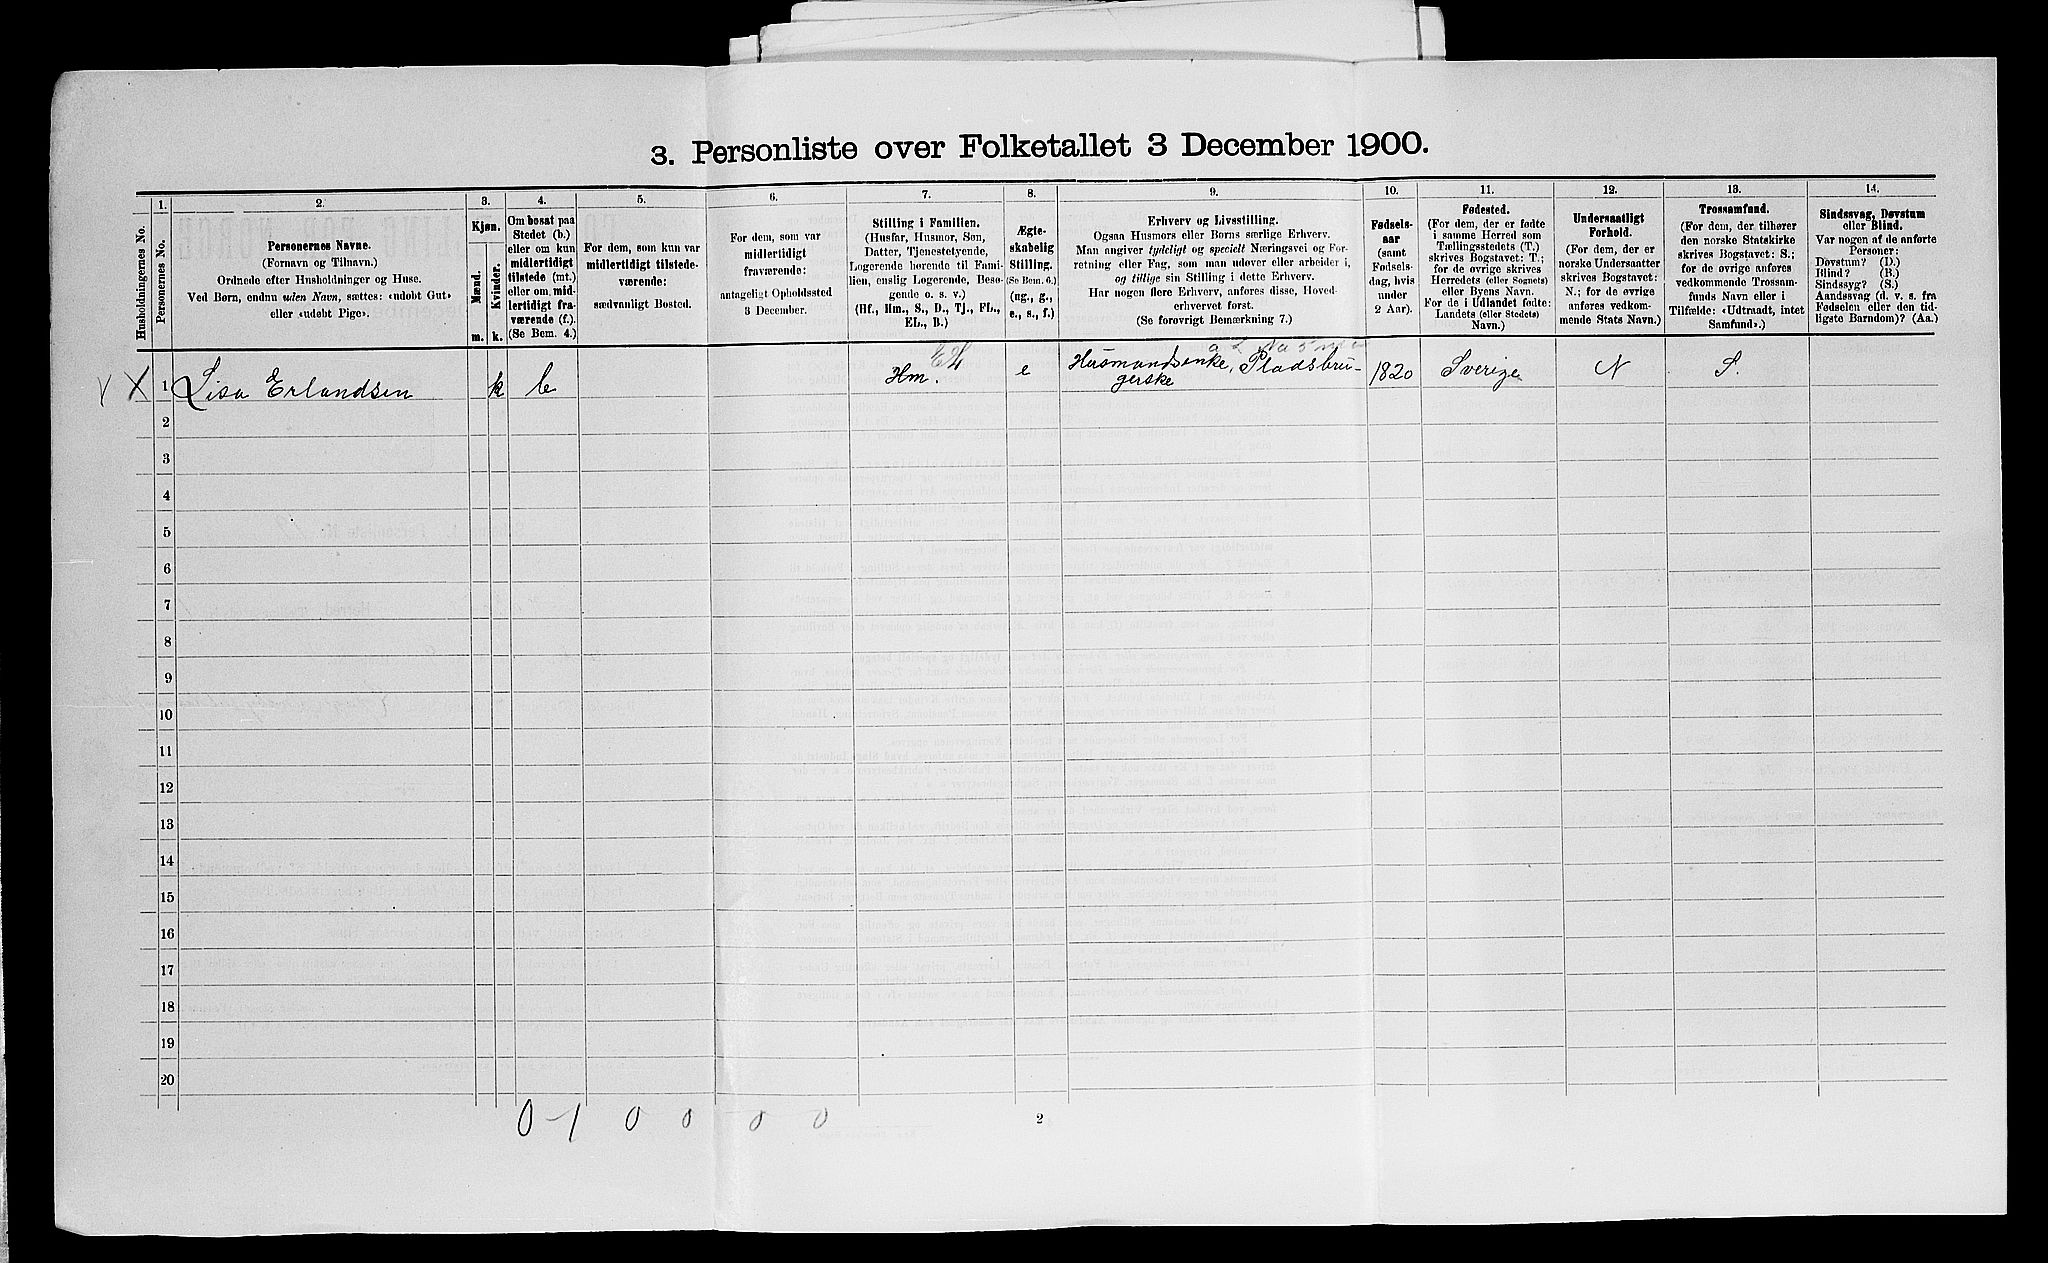 3. Personliste over Folketallet 3 December 1900.
Husholdningernes No.
1.
Personernes No.
2.
Personernes Navne.
(Fornavn og Tilnavn.)
Ordnede efter Husholdninger og Huse.
Ved Børn, endnu uden Navn, sættes: «udøbt Gut»
eller «udøbt Pige».
3.
Kjøn.
Mænd.
Kvinder.
m. k.
4.
Om bosat paa
Stedet (b.)
eller om kun
midlertidigt
tilstede (mt.)
eller om mid-
lertidigt fra-
værende (f.).
(Se Bem. 4.)
5.
For dem, som kun var
midlertidigt tilstede-
værende:
sædvanligt Bosted.
6.
For dem, som var
midlertidigt
fraværende:
antageligt Opholdssted
3 December.
7.
Stilling i Familien.
(Husfar, Husmor, Søn,
Datter, Tjenestetyende,
Logerende hørende til Fami-
lien, enslig Logerende, Besø-
gende o. s. v.)
(Hf., Hm., S., D., Tj., FL.,
EL., B.)
8.
Ægte-
skabelig
Stilling.
(Se Bem. 6.)
(ug., g.,
e., s., f.)
9.
Erhverv og Livsstilling.
Ogsaa Husmors eller Børns særlige Erhverv.
Man angiver tydeligt og specielt Næringsvei og For-
retning eller Fag, som man udøver eller arbeider i,
og tillige sin Stilling i dette Erhverv.
Har nogen flere Erhverv, anføres disse, Hoved-
erhvervet først.
(Se forøvrigt Bemærkning 7.)
10.
Fødsels-
aar
(samt
Fødsels-
dag, hvis
under
2 Aar).
11.
Fødested.
(For dem, der er fødte
i samme Herred som
Tællingsstedets (T.)
skrives Bogstavet: T.;
for de øvrige skrives
Herredets (eller Sognets)
eller Byens Navn.
For de i Udlandet fødte:
Landets (eller Stedets)
Navn.)
12.
Undersaatligt
Forhold.
(For dem, der er
norske Undersaatter
skrives Bogstavet:
N.; for de øvrige
anføres vedkom-
mende Stats Navn.)
13.
Trossamfund.
(For dem, der tilhører
den norske Statskirke
skrives Bogstavet: S.;
for de øvrige anføres
vedkommende Trossam-
funds Navn eller i
Tilfælde: «Udtraadt, intet
Samfund».)
14.
Sindssvag, Døvstum
eller Blind.
Var nogen af de anførte
Personer:
Døvstum? (D.)
Blind? (B.)
Sindssyg? (S.)
Aandssvag (d. v. s. fra
Fødselen eller den tid-
ligste Barndom)? (Aa.)
X 1 Lisa Erlandsen k b Hm. e Husmandsenke, Pladsbru- 1820 Sverige N S.
gerske
2
3
4
5
6
7
8
9
10
11
12
13
14
15
16
17
18
19
20
0-1 0 0 0 0
2